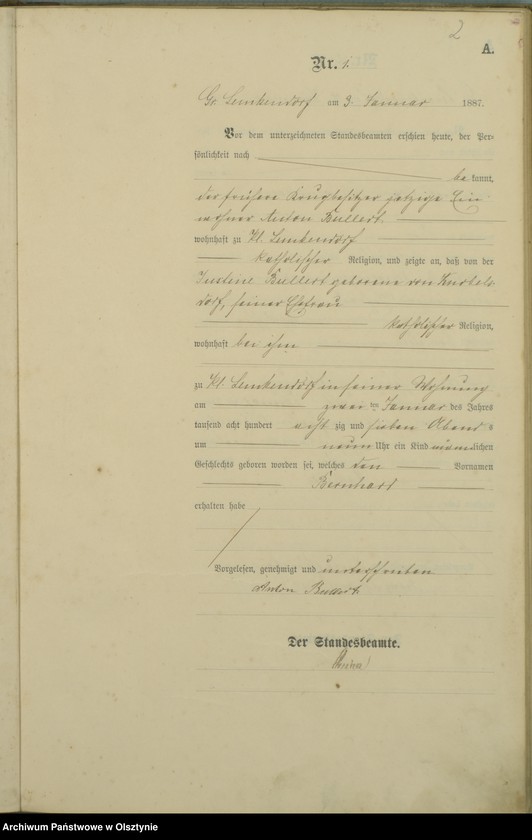 2
A.
Nr. 1.
Gr. Lemkendorf am 3. Januar 1887.
Vor dem unterzeichneten Standesbeamten erschien heute, der Per-
sönlichkeit nach
be kannt,
der frühere Krugbesitzer jetzige Ein-
wohner Anton Bullert
wohnhaft zu Kl. Lemkendorf
katholischer Religion, und zeigte an, daß von der
Justine Bullert geborene von Knobels
dorf, seiner Ehefrau
katholischer Religion,
wohnhaft bei ihm
zu Kl. Lemkendorf in seiner Wohnung
am zwei ten Januar des Jahres
tausend acht hundert acht zig und sieben Abends
um neun Uhr ein Kind männlichen
Geschlechts geboren worden sei, welches den Vornamen
Bernhard
erhalten habe
Vorgelesen, genehmigt und unterschrieben
Anton Bullert
Der Standesbeamte.
Archiwum Państwowe w Olsztynie